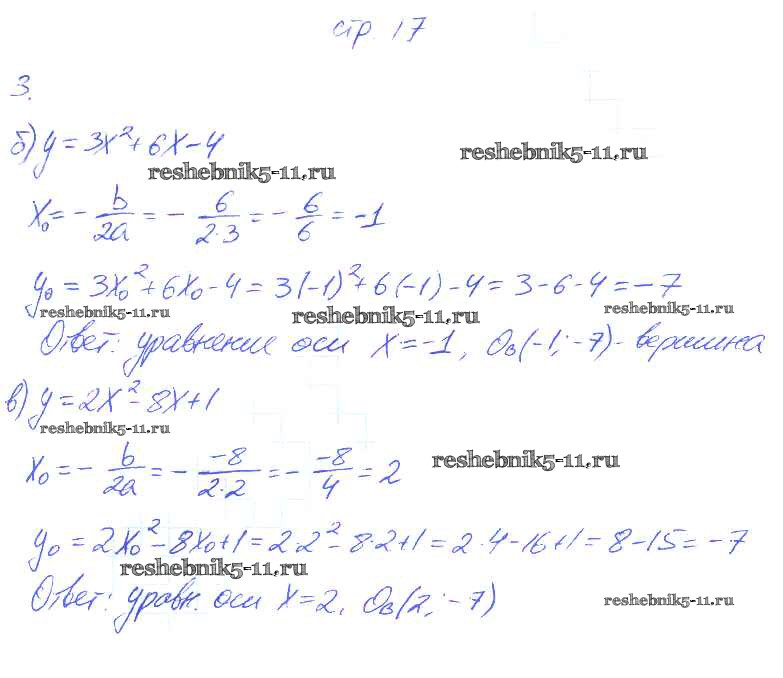 стр. 17
3.
б) y = 3x² + 6x - 4
reshebnik5-11.ru
reshebnik5-11.ru
x₀ = - b/2a = - 6/2·3 = - 6/6 = -1
y₀ = 3x₀² + 6x₀ - 4 = 3(-1)² + 6(-1) - 4 = 3 - 6 - 4 = -7
reshebnik5-11.ru
reshebnik5-11.ru
reshebnik5-11.ru
Ответ: уравнение оси x = -1, Oв(-1; -7) - вершина
в) y = 2x² - 8x + 1
reshebnik5-11.ru
x₀ = - b/2a = - -8/2·2 = - -8/4 = 2
reshebnik5-11.ru
y₀ = 2x₀² - 8x₀ + 1 = 2·2² - 8·2 + 1 = 2·4 - 16 + 1 = 8 - 15 = -7
reshebnik5-11.ru
Ответ: уравн. оси x = 2, Oв(2; -7)
reshebnik5-11.ru